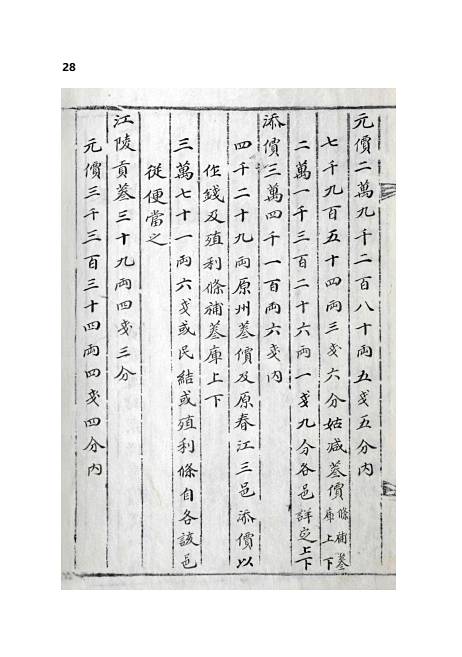 28
元價二萬九千二百八十兩五戔五分內
七千九百五十四兩三戔六分姑減蔘價條補蔘庫上下
二萬一千三百二十六兩一戔九分各邑詳定上下
添價三萬四千一百兩六戔內
四千二十九兩原州蔘價及原春江三邑添價以
作錢及殖利條補蔘庫上下
三萬七十一兩六戔或民結或殖利條自各該邑
從便當之
江陵貢蔘三十九兩四戔三分
元價三千三百三十四兩四戔四分內